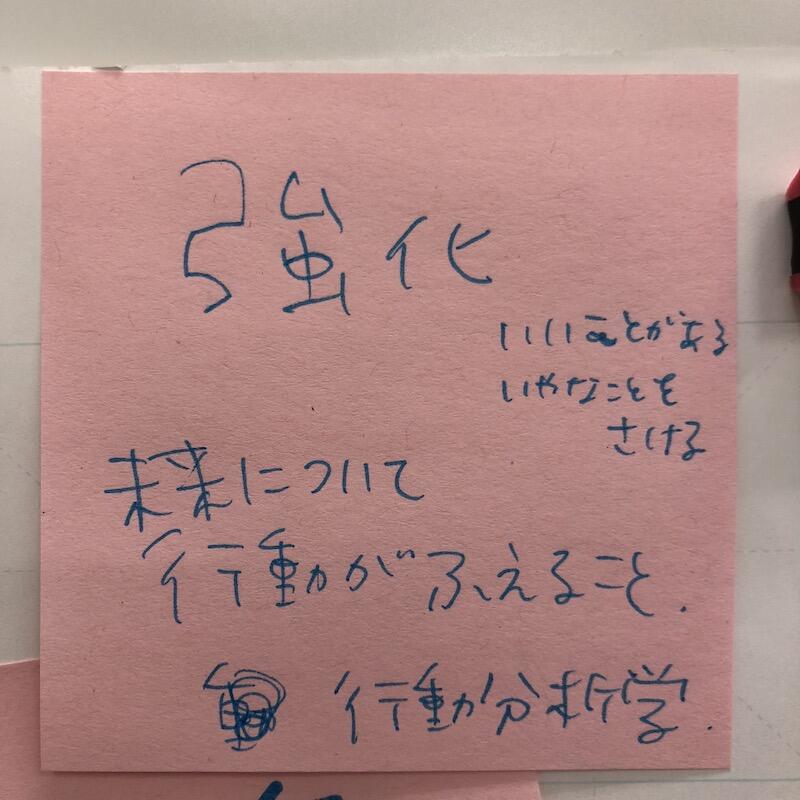 強化
いいことがある
いやなことを
さける
未来について
行動がふえること.
行動分析学.